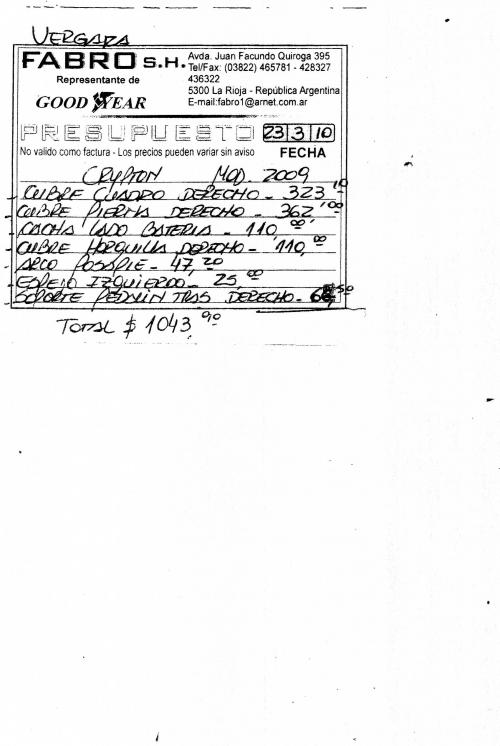 VERGARA
FABRO S.H.
Avda. Juan Facundo Quiroga 395
Tel/Fax: (03822) 465781 - 428327
436322
Representante de
5300 La Rioja - República Argentina
GOOD YEAR
E-mail:fabro1@arnet.com.ar
PRESUPUESTO 23 3 10
No valido como factura - Los precios pueden variar sin aviso FECHA
CRYPTON MOD. 2009
- CUBRE CUADRO DERECHO - 323,10
- CUBRE PIERNA DERECHO - 362,00
- CACHA LADO BATERIA - 110,00
- CUBRE HORQUILLA DERECHO - 110,00
- ARCO POSAPIE - 47,20
- ESPEJO IZQUIERDO - 25,00
- SOPORTE PEDALIN TRAS DERECHO - 50
TOTAL $ 1043,90